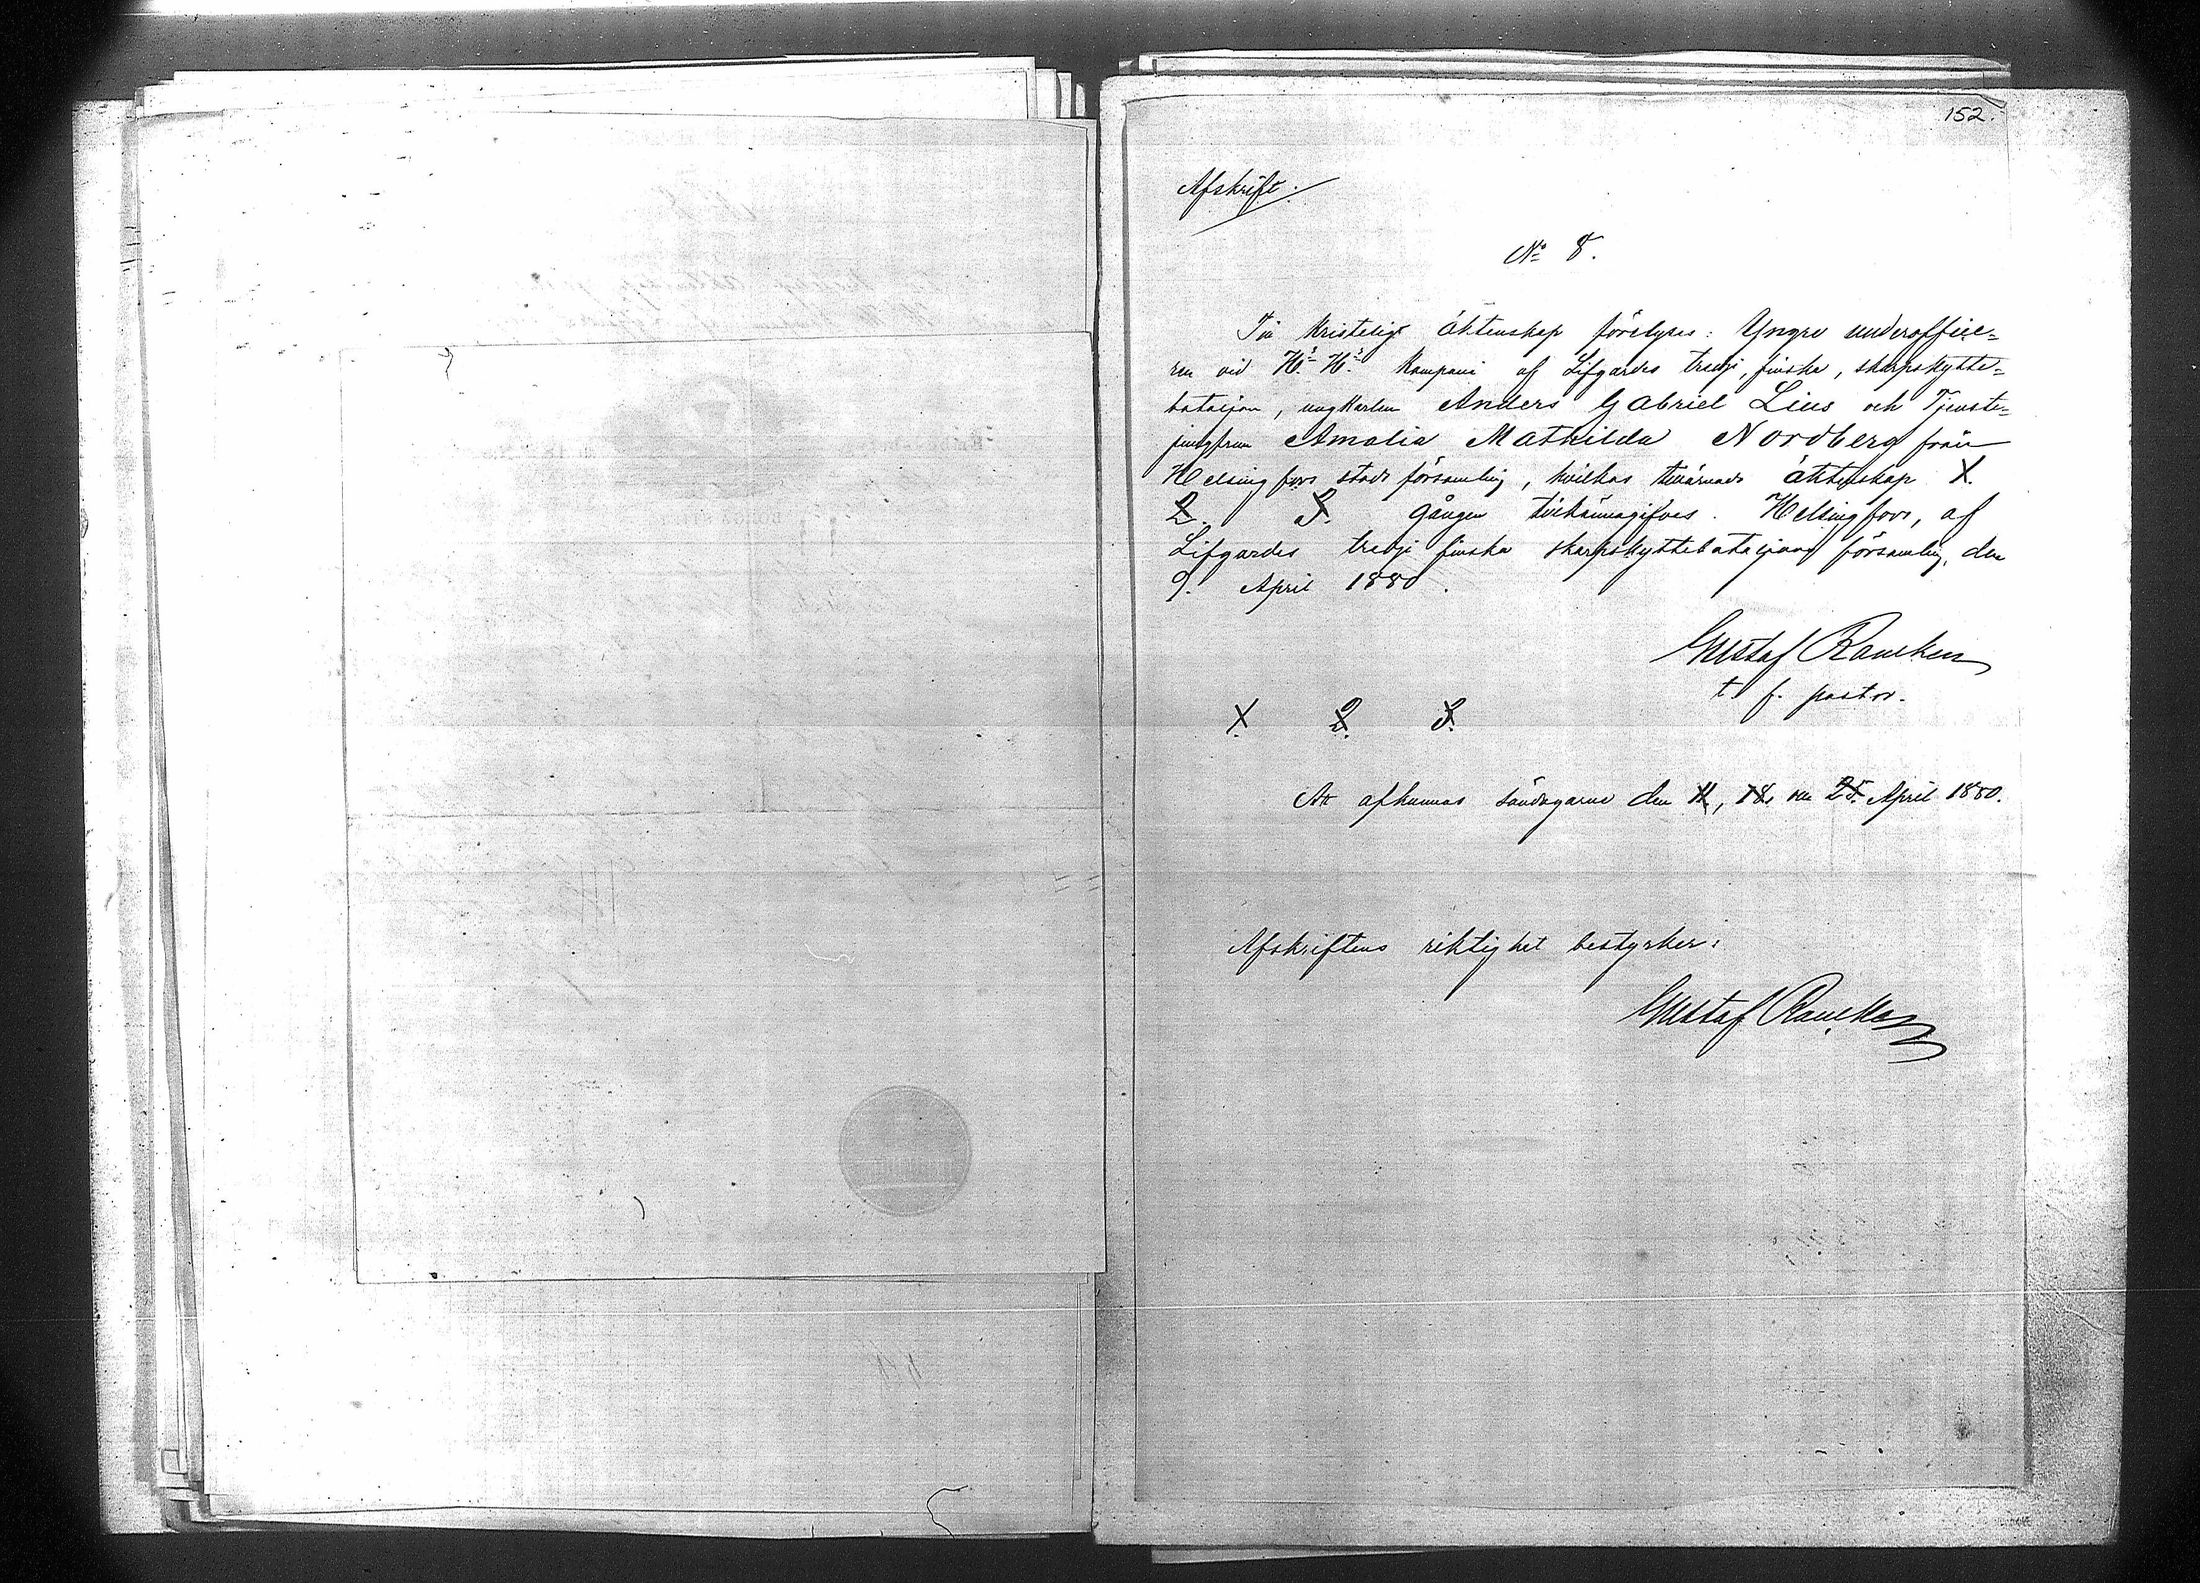 152.
Afskrift.
No 8.
Till kristeligt äktenskap förelyses: Yngre underoffice=
ren vid H.s H.s Kompani af Lifgardes tredje, finska, skarpskytte=
bataljon, ungkarlen Anders Gabriel Lius och Tjenste=
jungfrun Amalia Mathilda Nordberg från
Helsingfors stads församling, hvilkas tillärnade äktenskap 1.
2. 3. gången tillkännagifves. Helsingfors, af
Lifgardes tredje finska skarpskyttebataljons församling, den
9. April 1880.
Gustaf Rancken
t. f. pastor.
1. 2. 3.
Att afkunnas söndagarne den 11, 18, och 25. April 1880.
Afskriftens riktighet bestyrker:
Gustaf Rancken